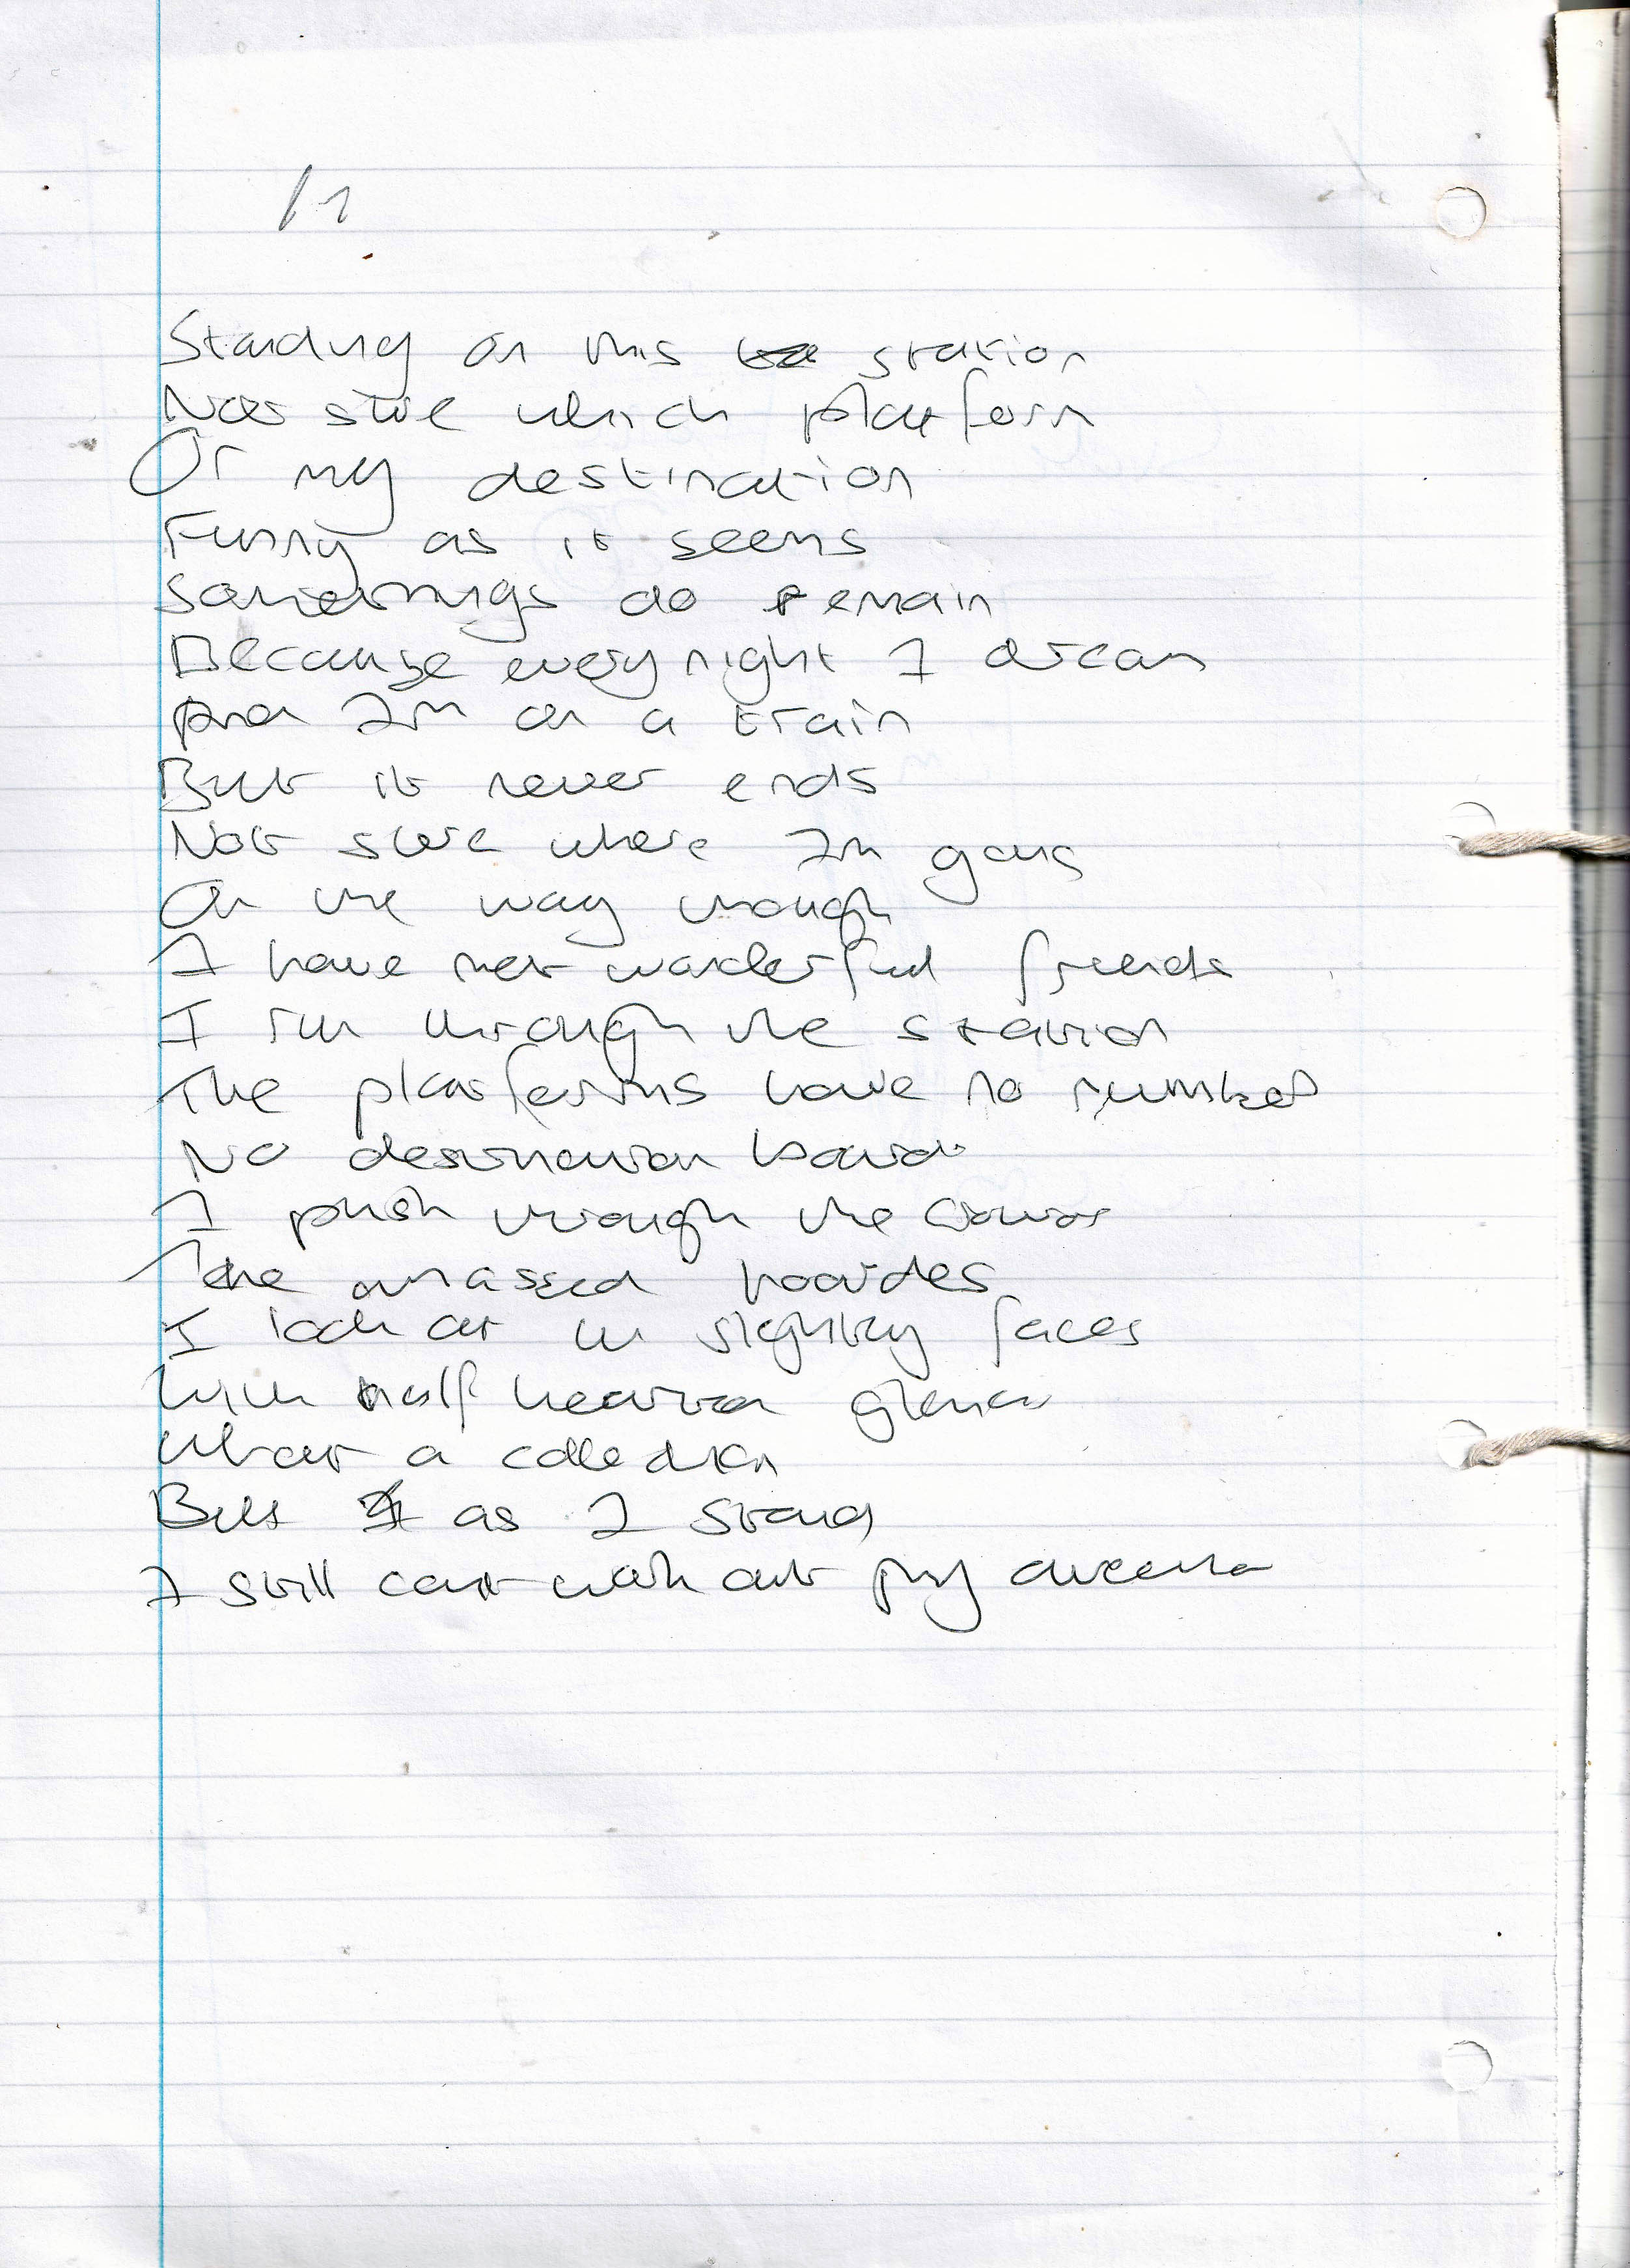 Standing on this station
Not sure which platform
Or my destination
Funny as it seems
Somethings do remain
Because every night I dream
And Im on a train
But it never ends
Not sure where Im going
On the way though
I have met wonderful friends
I run through the station
The platforms have no number
No destination boards
I push through the crowds
The massed hoardes
I look at faces
With half hearted
What a collection
But as I stand
I still cant work out my dreams